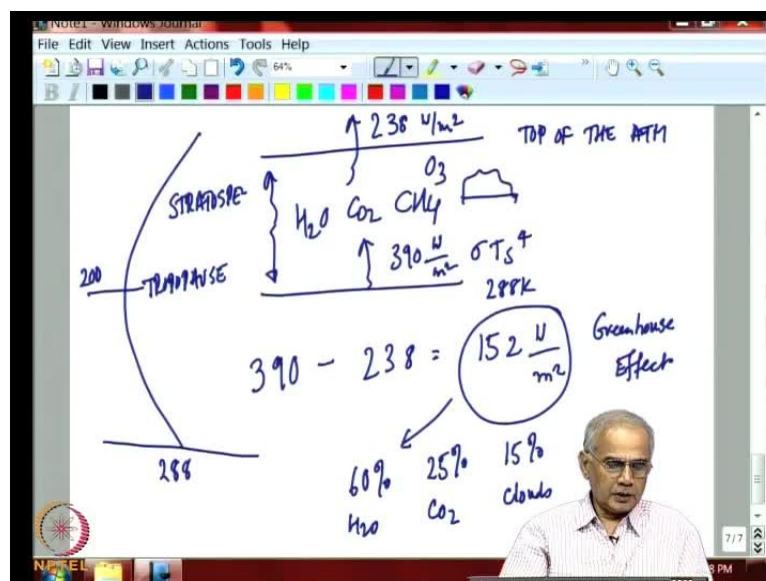 Note1 - Windows Journal
File Edit View Insert Actions Tools Help
64%
B I
238 W/m²
TOP OF THE ATM
STRATOSPE-
H2O CO2 CH4 O3
390 W/m² σTs⁴
288K
200
TROPOPAUSE
390 - 238 = 152 W/m²
Greenhouse
Effect
288
60% 25% 15%
H2O CO2 Clouds
7/7
NPTEL
PM